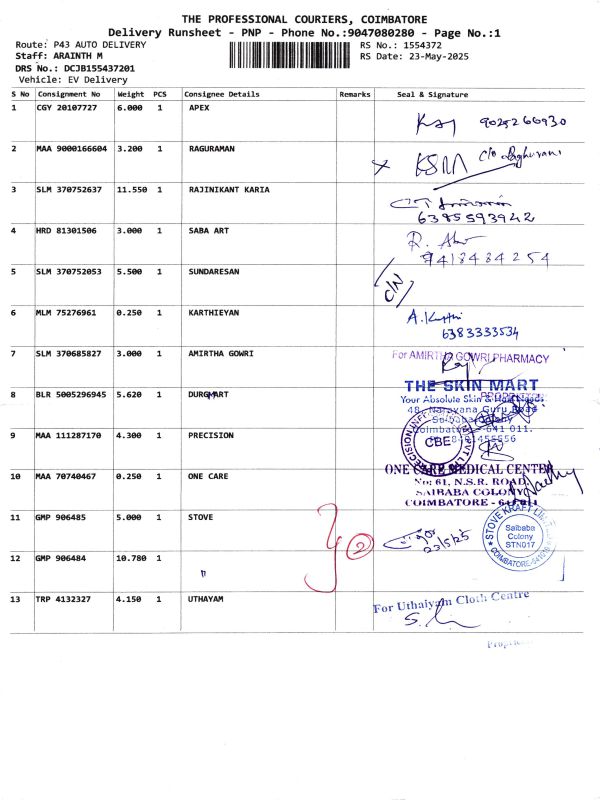 THE PROFESSIONAL COURIERS, COIMBATORE
Delivery Runsheet - PNP - Phone No.:9047080280 - Page No.:1
Route: P43 AUTO DELIVERY
Staff: ARAINTH M
DRS No.: DCJB155437201
Vehicle: EV Delivery
RS No.: 1554372
RS Date: 23-May-2025
S No Consignment No Weight PCS Consignee Details Remarks Seal & Signature
1 CGY 20107727 6.000 1 APEX
9025266930
2 MAA 9000166604 3.200 1 RAGURAMAN
C/o
3 SLM 370752637 11.550 1 RAJINIKANT KARIA
6385593942
4 HRD 81301506 3.000 1 SABA ART
9418484254
5 SLM 370752053 5.500 1 SUNDARESAN
C/N
6 MLM 75276961 0.250 1 KARTHIEYAN
6383333534
7 SLM 370685827 3.000 1 AMIRTHA GOWRI
For AMIRTHA GOWRI PHARMACY
8 BLR 5005296945 5.620 1 DURGMART
THE SKIN MART
Your Absolute Skin & Hair Needs
48, Narayana Guru Road
Saibaba Colony
Coimbatore - 641 011.
9 MAA 111287170 4.300 1 PRECISION
CBE
10 MAA 70740467 0.250 1 ONE CARE
ONE CARE MEDICAL CENTER
No: 61, N.S.R. ROAD,
SAIBABA COLONY,
COIMBATORE - 641 011
11 GMP 906485 5.000 1 STOVE
2
23/5/25
STOVE KRAFT
Saibaba
Colony
STN017
COIMBATORE-641011
12 GMP 906484 10.780 1
"
13 TRP 4132327 4.150 1 UTHAYAM
For Uthaiyam Cloth Centre